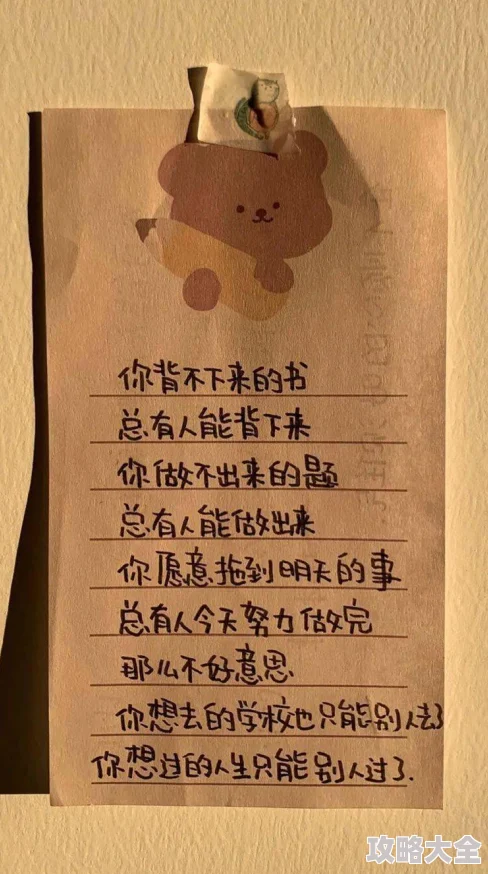 你背不下来的书
总有人能背下来
你做不出来的题
总有人能做出来
你愿意拖到明天的事
总有人今天努力做完
那么不好意思
你想去的学校也只能别人去了
你想过的人生只能别人过了.
攻略大全